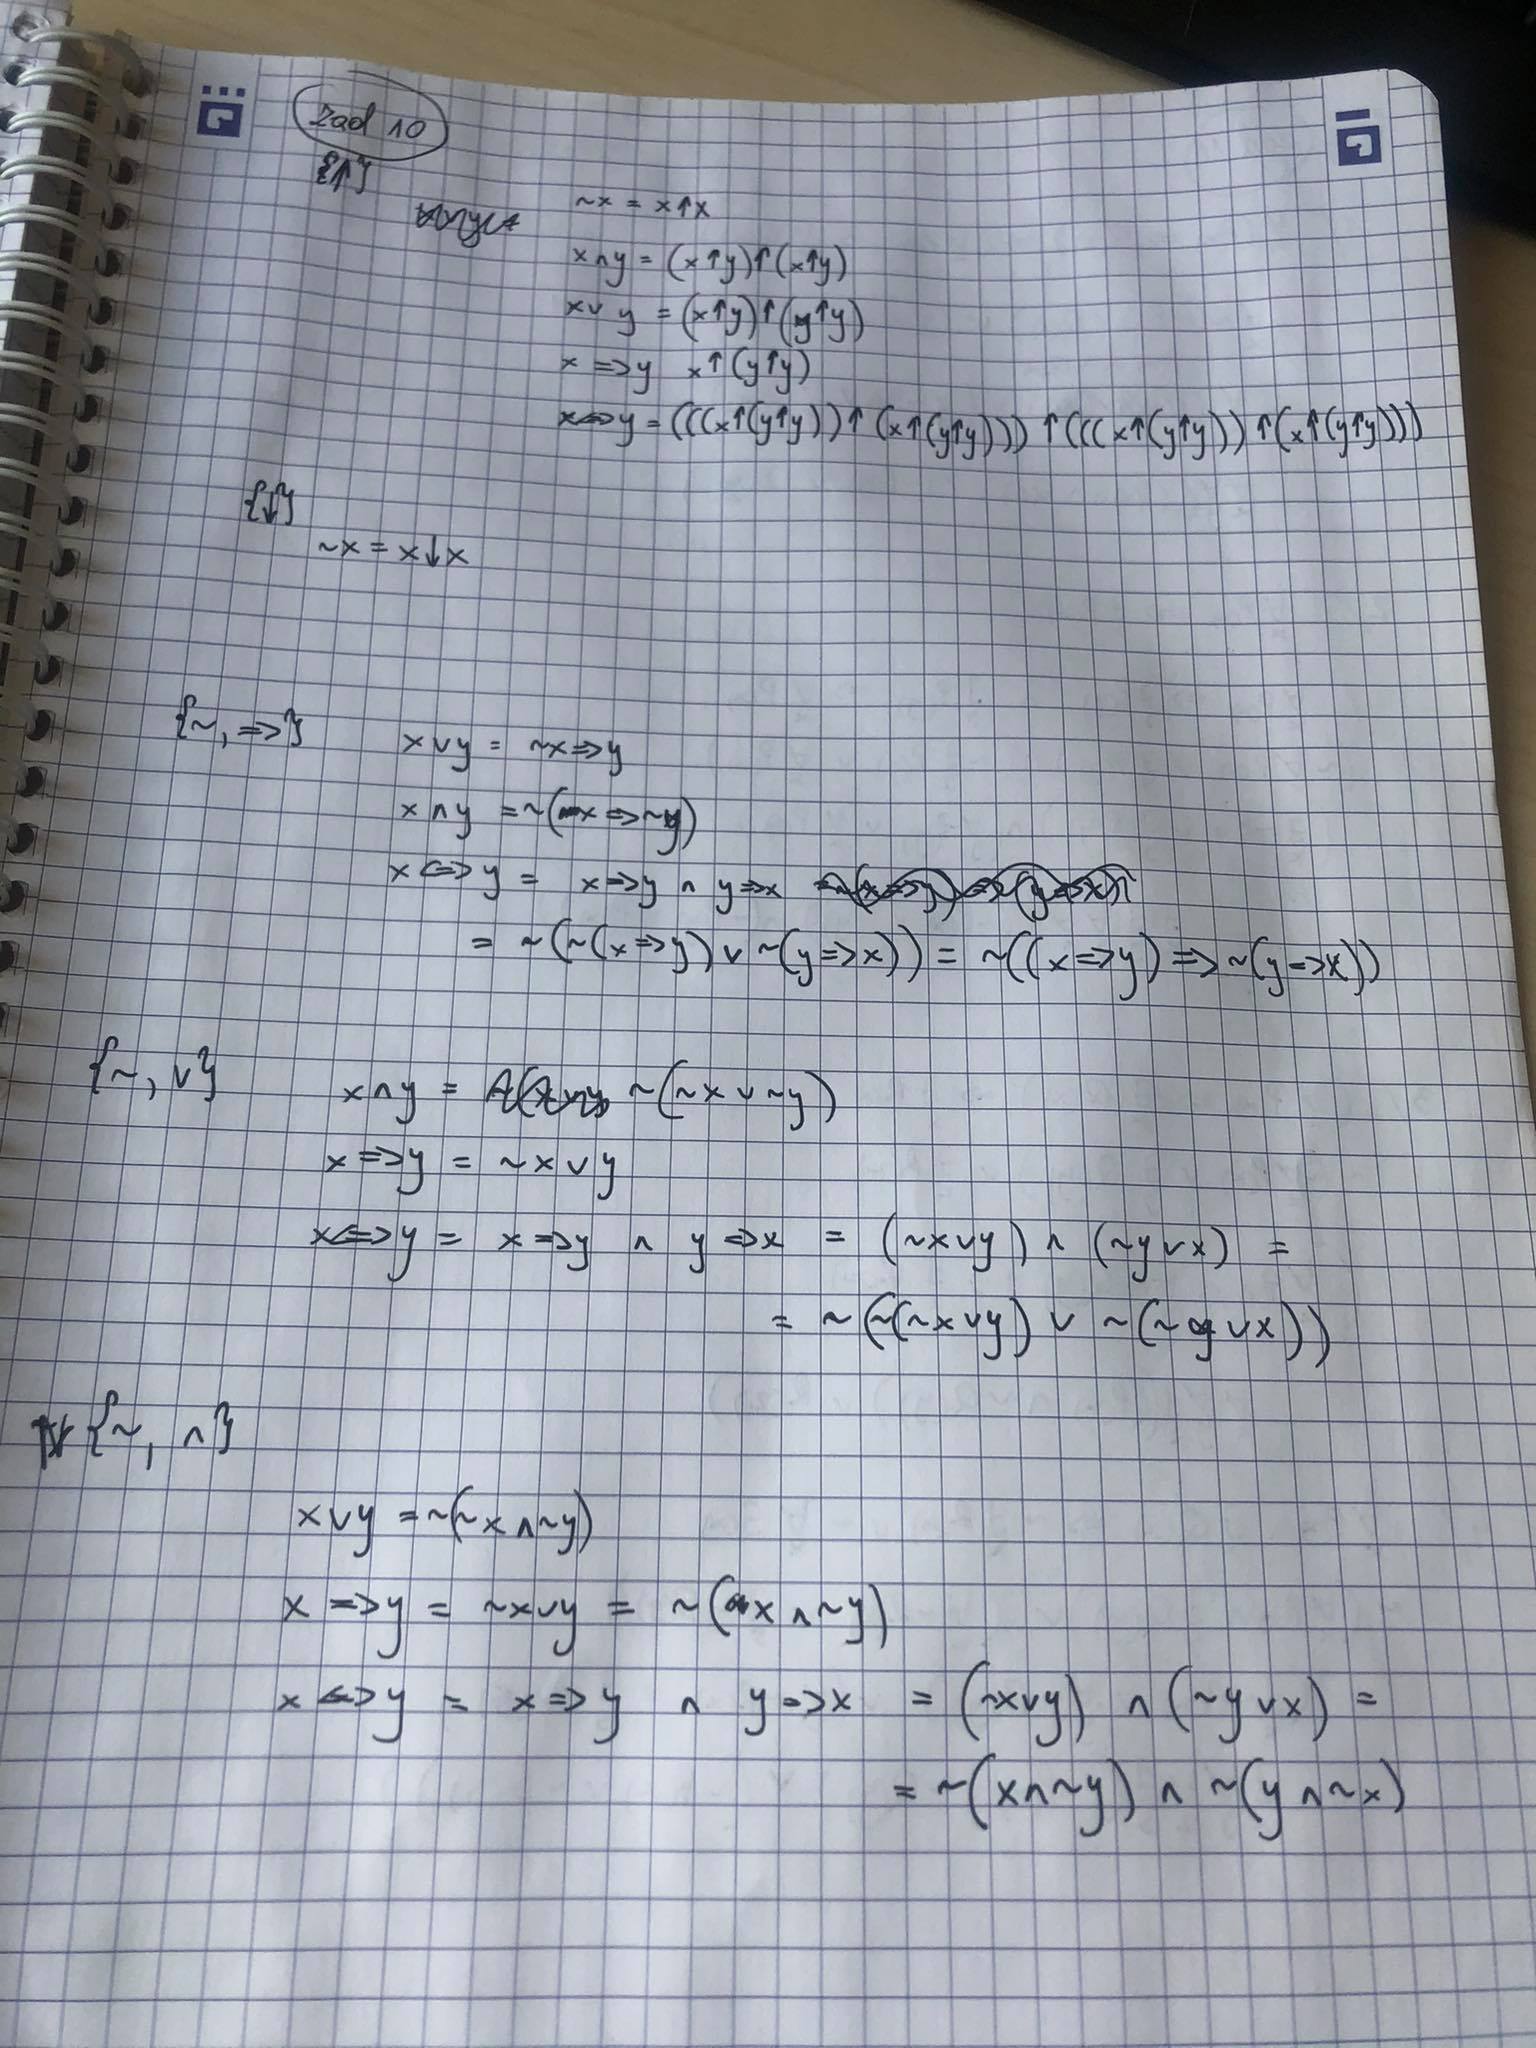 Zad 10
{↑}
~x = x↑x
x∧y = (x↑y)↑(x↑y)
x∨y = (x↑y)↑(y↑y)
x ⇒ y x↑(y↑y)
x⇔y = (((x↑(y↑y))↑(x↑(y↑y)))↑(((x↑(y↑y))↑(x↑(y↑y)))
{↓}
~x = x↓x
{~, ⇒}
x∨y = ~x⇒y
x∧y = ~(x⇒~y)
x⇔y = x⇒y ∧ y⇒x
= ~(~(x⇒y)∨~(y⇒x)) = ~((x⇒y)⇒~(y⇒x))
{~, ∨}
x∧y = ~(~x∨~y)
x⇒y = ~x∨y
x⇔y = x⇒y ∧ y⇒x = (~x∨y)∧(~y∨x) =
= ~(~(~x∨y) ∨ ~(~y∨x))
{~, ∧}
x∨y = ~(~x∧~y)
x ⇒ y = ~x∨y = ~(x∧~y)
x⇔y = x⇒y ∧ y⇒x = (~x∨y) ∧ (~y∨x) =
= ~(x∧~y) ∧ ~(y∧~x)